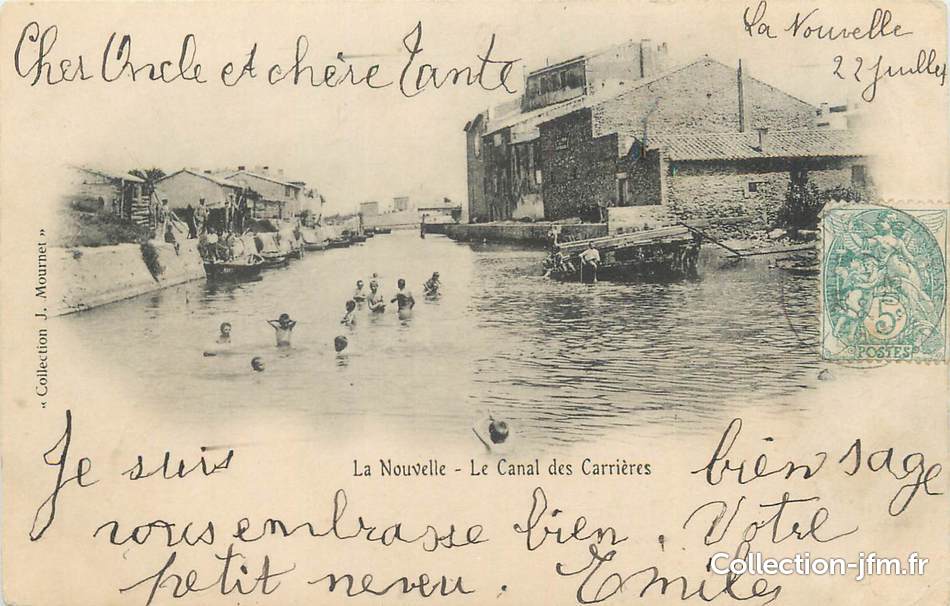 La Nouvelle
22 Juillet
Cher Oncle et chère Tante
"Collection J. Mournet"
5c
POSTES
La Nouvelle - Le Canal des Carrières
Je suis bien sage
vous embrasse bien. Votre
petit neveu. Emile
Collection-jfm.fr